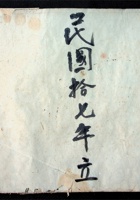 民國拾七年立